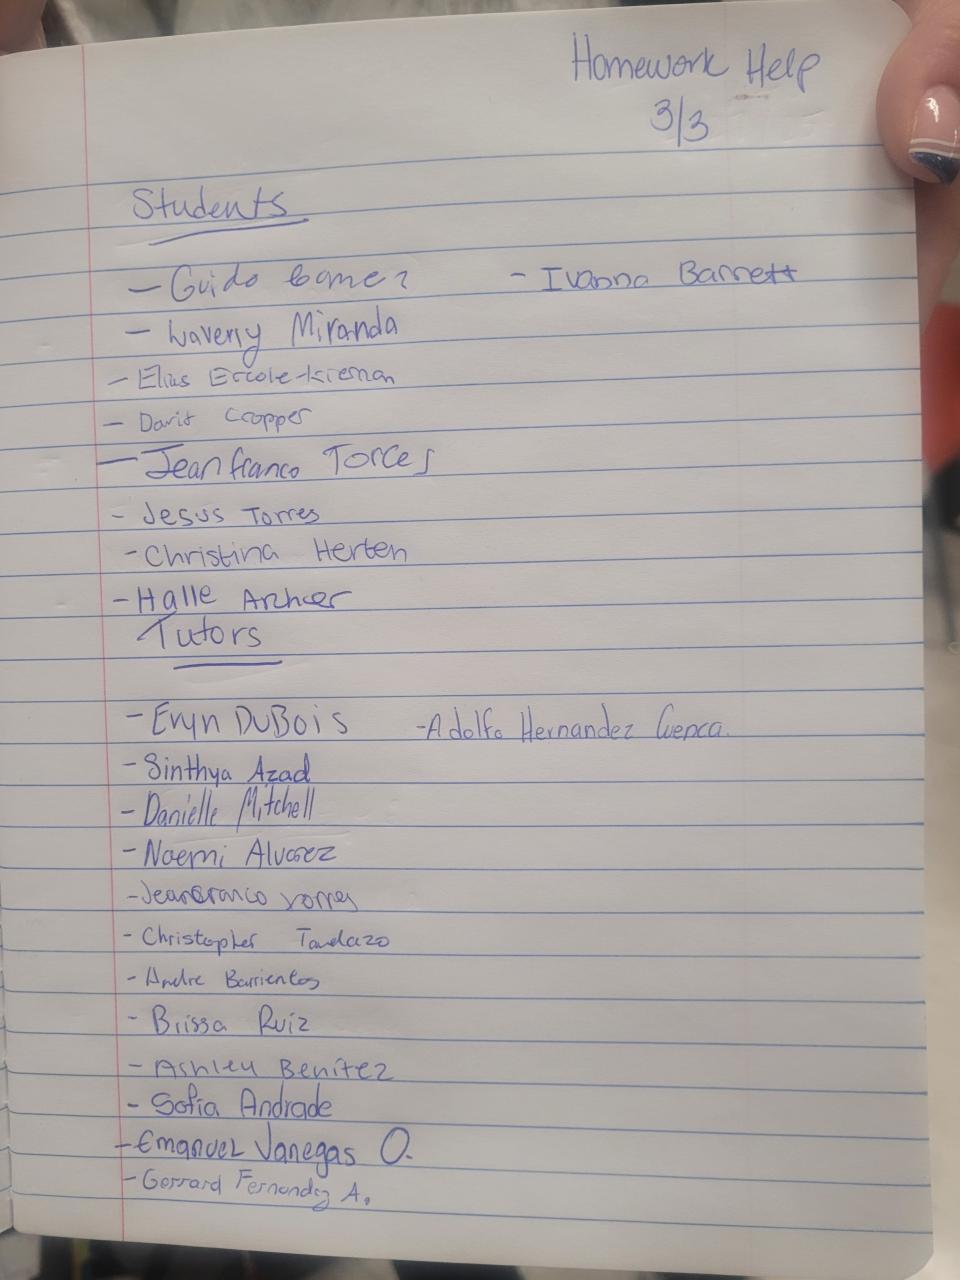 Homework Help
3/3
Students
- Guido Gomez - Ivanna Barrett
- Waverly Miranda
- Elias Ercole-Kiernan
- David Cropper
- Jeanfranco Torres
- Jesus Torres
- Christina Herten
- Halle
Tutors
- Eryn DuBois - Adolfo Hernandez Cuenca.
- Sinthya Azad
- Danielle Mitchell
- Noemi Alvarez
- Jeanfranco Torres
- Christopher Tandazo
- Andre Barrientos
- Brissa Ruiz
- Ashley Benitez
- Sofia Andrade
- Emanuel Vanegas O.
- Gerrard Fernandez A.